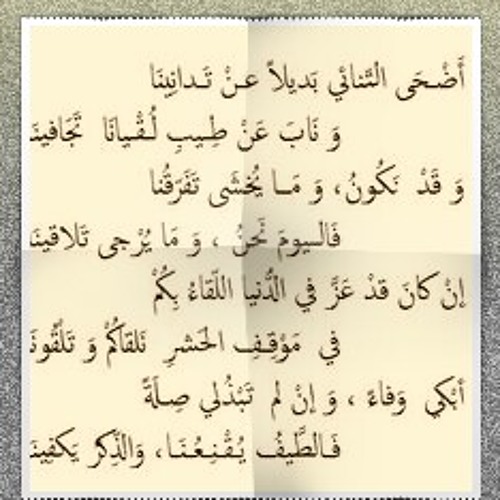 أَضْحَى التَّنائي بَديلاً عنْ تَدانِينَا
وَ نَابَ عَنْ طِيبِ لُقْيانَا تَجَافينَ
وَ قَدْ نَكُونُ، وَ مَا يُخْشَى تَفَرّقُنا
فَاليومَ نَحنُ ، وَ مَا يُرْجى تَلاقينَ
إنْ كانَ قدْ عَزَّ في الدُّنيا اللّقاءُ بِكُمْ
في مَوْقِفِ الحَشرِ نَلقاكُمْ وَ تَلْقُونَ
أبْكي وَفاءً ، وَ إنْ لم تَبْذُلي صِلَةً
فَالطَّيفُ يُقْنِعُنَا، وَالذِّكرُ يَكفِينَ